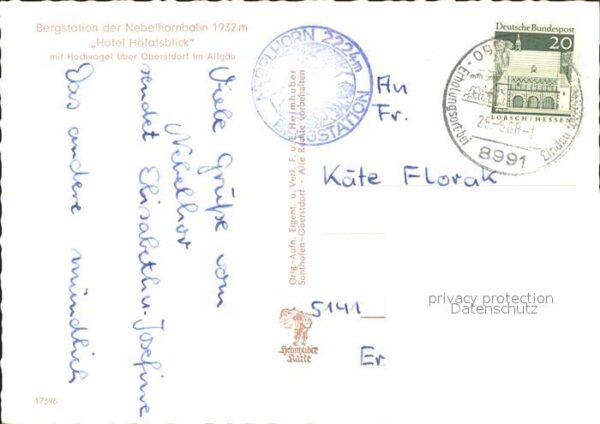 Bergstation der Nebelhornbahn 1932 m
„Hotel Höfatsblick"
mit Hochvogel über Oberstdorf im Allgäu
Viele Grüße vom
Nebelhor
sendet Elisabeth u. Josefine
Das andere mündlich
NEBELHORN 2224m
BERGSTATION
Orig.-Aufn. Eigent. u. Verl. F. u. J. Heimhuber
Sonthofen-Oberstdorf - Alle Rechte vorbehalten
Heimhuber
Karte
17396
Deutsche Bundespost
20
LORSCH/HESSEN
8991
An
Fr.
Käte Florak
5141
Er
privacy protection
Datenschutz